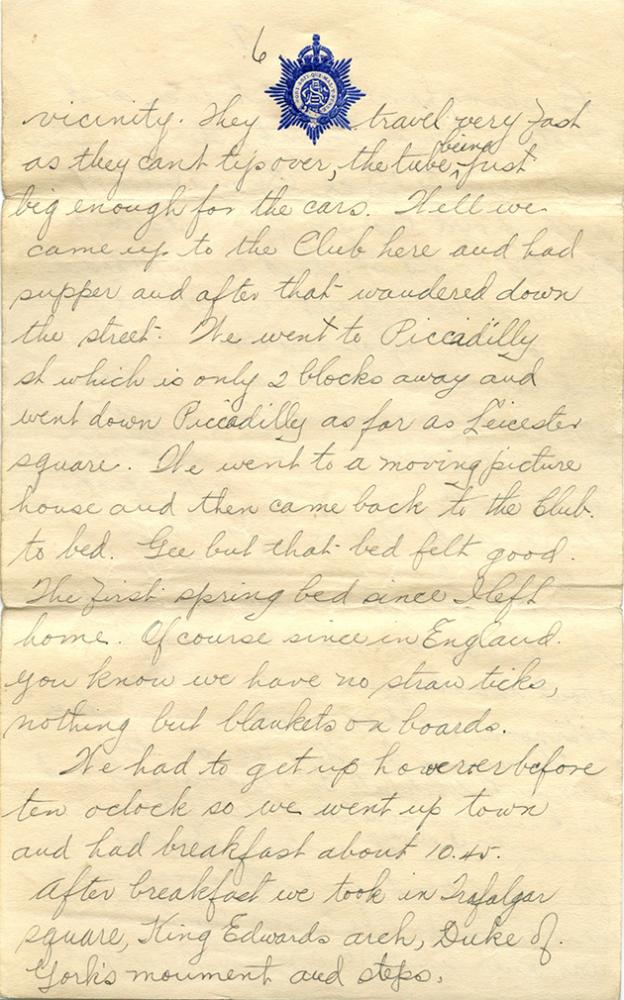 6
vicinity. They travel very fast
as they cant tip over, the tube being just
big enough for the cars. Well we
came up to the Club here and had
supper and after that wandered down
the street. We went to Piccadilly
st which is only 2 blocks away and
went down Piccadilly as far as Leicester
square. We went to a moving picture
house and then came back to the Club.
to bed. Gee but that bed felt good.
The first spring bed since I left
home. Of course since in England
you know we have no straw ticks,
nothing but blankets on boards.
We had to get up however before
ten oclock so we went up town
and had breakfast about 10.45.
After breakfast we took in Trafalgar
square, King Edwards arch, Duke of
York's moument and steps.